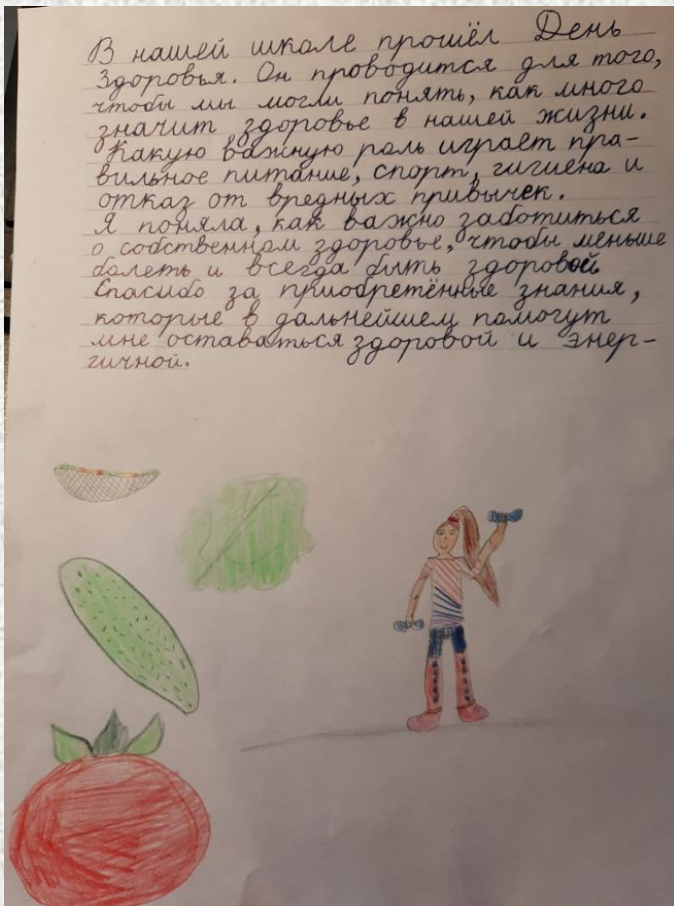 В нашей школе прошёл День
Здоровья. Он проводится для того,
чтобы мы могли понять, как много
значит здоровье в нашей жизни.
Какую важную роль играет пра-
вильное питание, спорт, гигиена и
отказ от вредных привычек.
Я поняла, как важно заботиться
о собственном здоровье, чтобы меньше
болеть и всегда быть здоровой
Спасибо за приобретённые знания,
которые в дальнейшем помогут
мне оставаться здоровой и энер-
гичной.